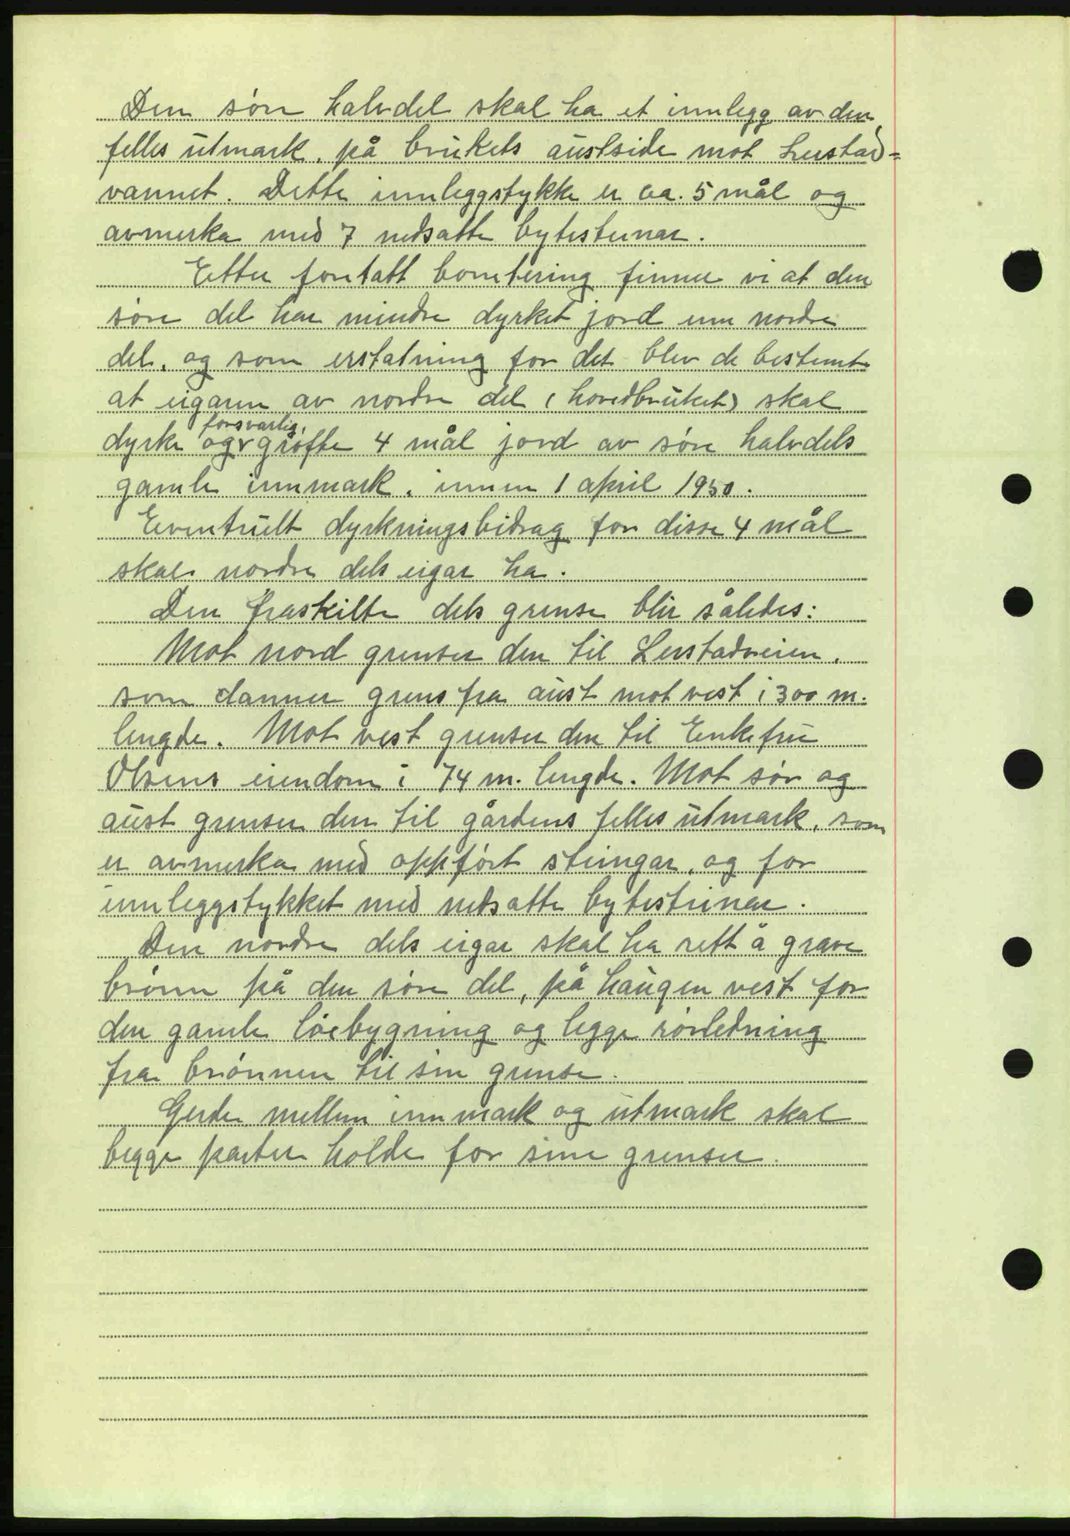 Den søre halvdel skal ha et innlegg av den
felles utmark, på brukets austside mot Leustad-
vannet. Dette innleggstykke er ca. 5 mål og
avmerka med 7 nedsatte bytesteinar.
Etter foretatt bonitering finner vi at den
søre del har mindre dyrket jord enn nordre
del, og som erstatning for det blev de bestemt
at eigaren av nordre del (hovedbruket) skal
forsvarlig
dyrke og grøfte 4 mål jord av søre halvdels
gamle innmark, innen 1 april 1950.
Eventuelt dyrkningsbidrag for disse 4 mål
skal nordre dels eigar ha.
Den fraskilte dels grense blir således:
Mot nord grenser den til Leustadveien,
som danner grens fra aust mot vest i 300 m.
lengde. Mot vest grenser den til Enkefru
Olsens eiendom i 74 m. lengde. Mot sør og
aust grenser den til gårdens felles utmark, som
er avmerka med oppført steingar, og for
innleggstykket med nedsatte bytesteinar.
Den nordre dels eigar skal ha rett å grave
brønn på den søre del, på haugen vest for
den gamle løebygning og legge rørledning
fra brønnen til sin grense.
Gjerde mellem innmark og utmark skal
begge parter holde for sine grenser.